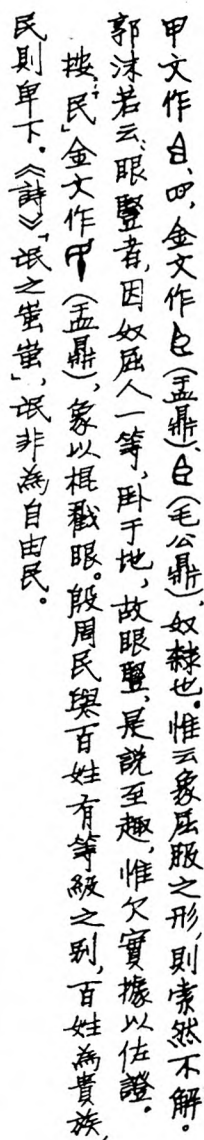 甲文作、，金文作（盂鼎）、（毛公鼎），奴隸也。惟云象屈服之形，則索然不解。
郭沫若云：眼豎者，因奴屈人一等，卧于地，故眼豎，是説至趣，惟欠實據以佐證。
按，「民」金文作（盂鼎），象以棍戳眼。殷周民與百姓有等級之别，百姓為貴族，
民則卑下。《詩》「氓之蚩蚩」，氓非為自由民。